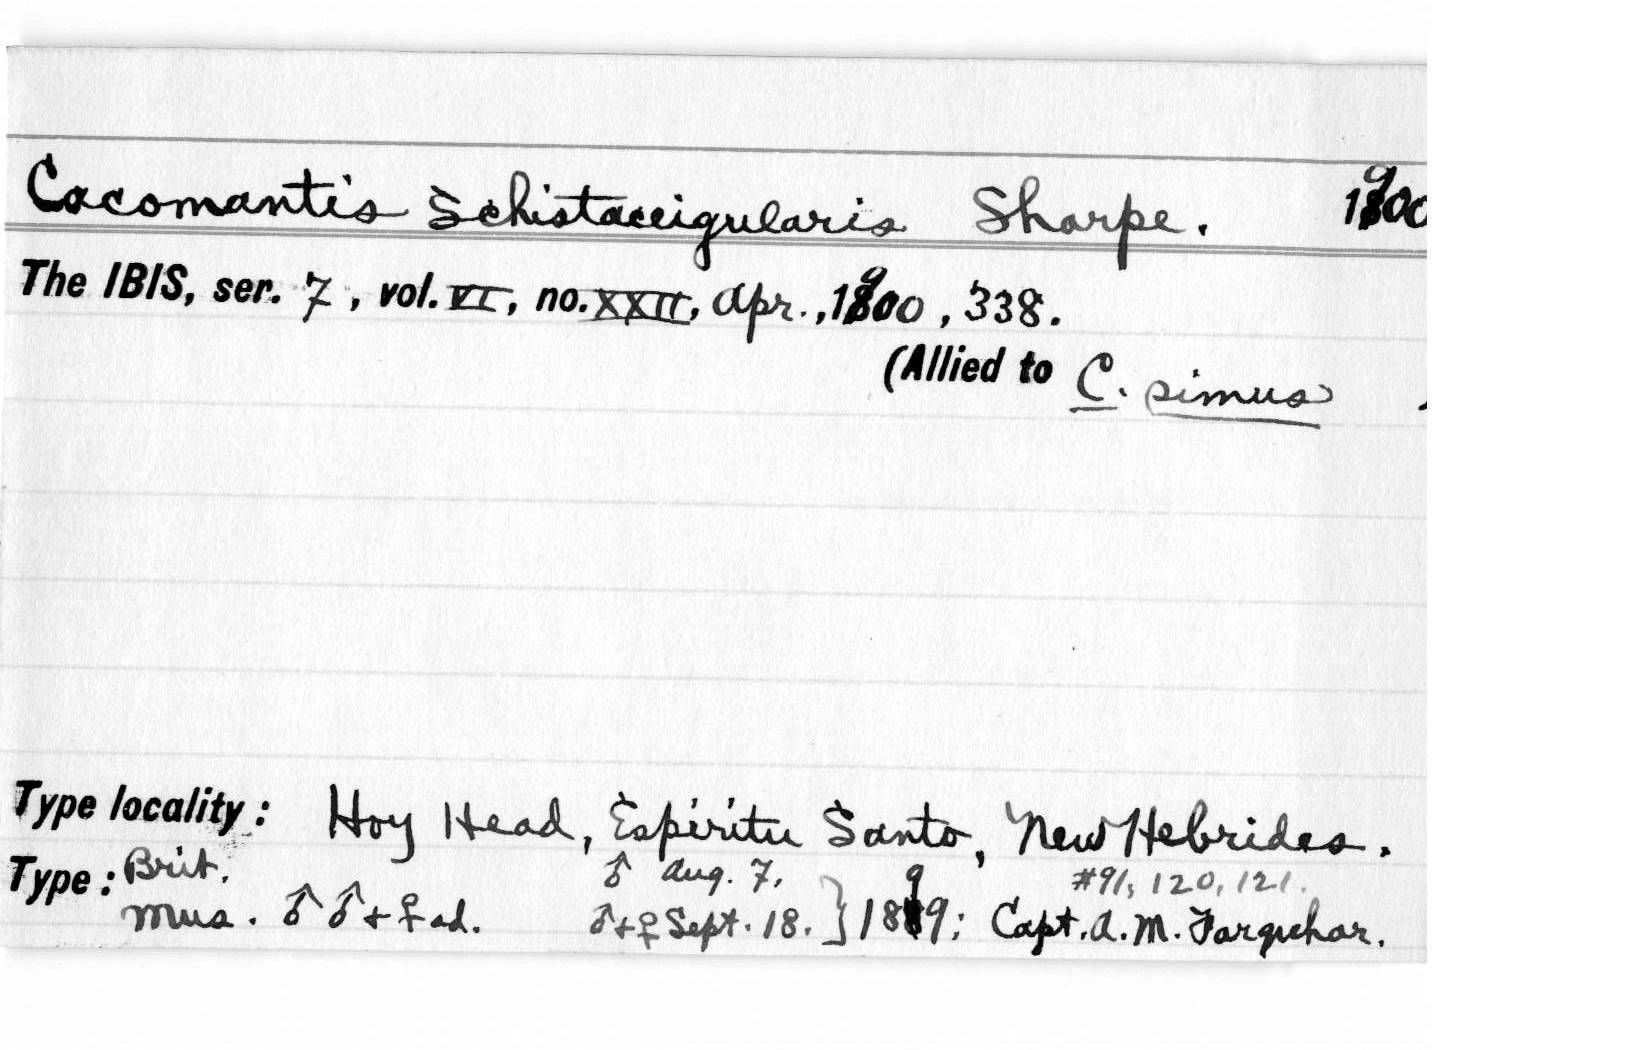 Cacomantis schistaceigularis Sharpe. 1900
The IBIS, ser. 7, vol. VI, no. XXII, Apr., 1900, 338.
(Allied to C. simus
Type locality: Hoy Head, Espiritu Santo, New Hebrides.
Type: Brit. ♂ Aug. 7, #91, 120, 121.
Mus. ♂♂+♀ad. ♂+♀ Sept. 18. } 1899; Capt. A. M. Farquhar.